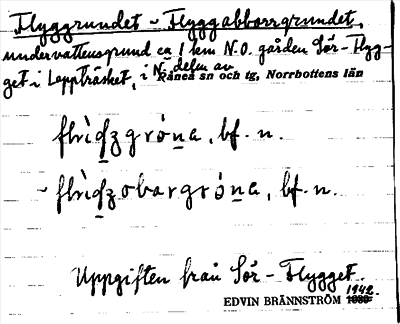 Flyggrundet ~ Flyggabborrgrundet,
undervattensgrund ca 1 km N.O. gården Sör-Flyg-
get i Lappträsket, i N. delen av
Råneå sn och tg, Norrbottens län
flìʤgróna, bf. n.
~ flìʤobargróna, bf. n.
Uppgiften från Sör-Flygget.
1942.
EDVIN BRÄNNSTRÖM 1939.